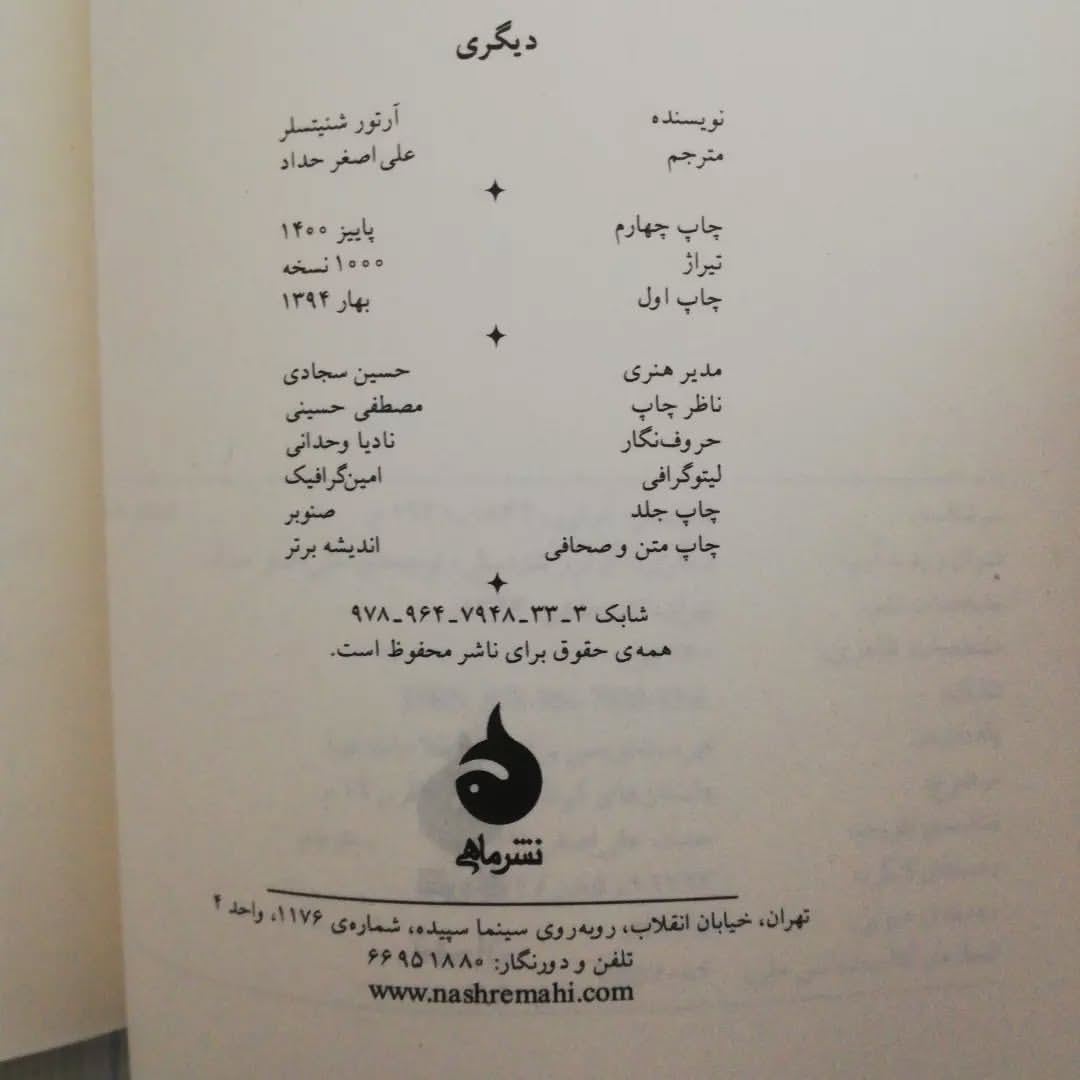 دیگری
نویسنده آرتور شنیتسلر
مترجم علی‌اصغر حداد
چاپ چهارم پاییز ۱۴۰۰
تیراژ ۱۰۰۰ نسخه
چاپ اول بهار ۱۳۹۴
مدیر هنری حسین سجادی
ناظر چاپ مصطفی حسینی
حروف‌نگار نادیا وحدانی
لیتوگرافی امین‌گرافیک
چاپ جلد صنوبر
چاپ متن و صحافی اندیشه برتر
شابک ۳-۳۳-۷۹۴۸-۹۶۴-۹۷۸
همه‌ی حقوق برای ناشر محفوظ است.
نشرماهی
تهران، خیابان انقلاب، روبه‌روی سینما سپیده، شماره‌ی ۱۱۷۶، واحد ۴
تلفن و دورنگار: ۶۶۹۵۱۸۸۰
www.nashremahi.com